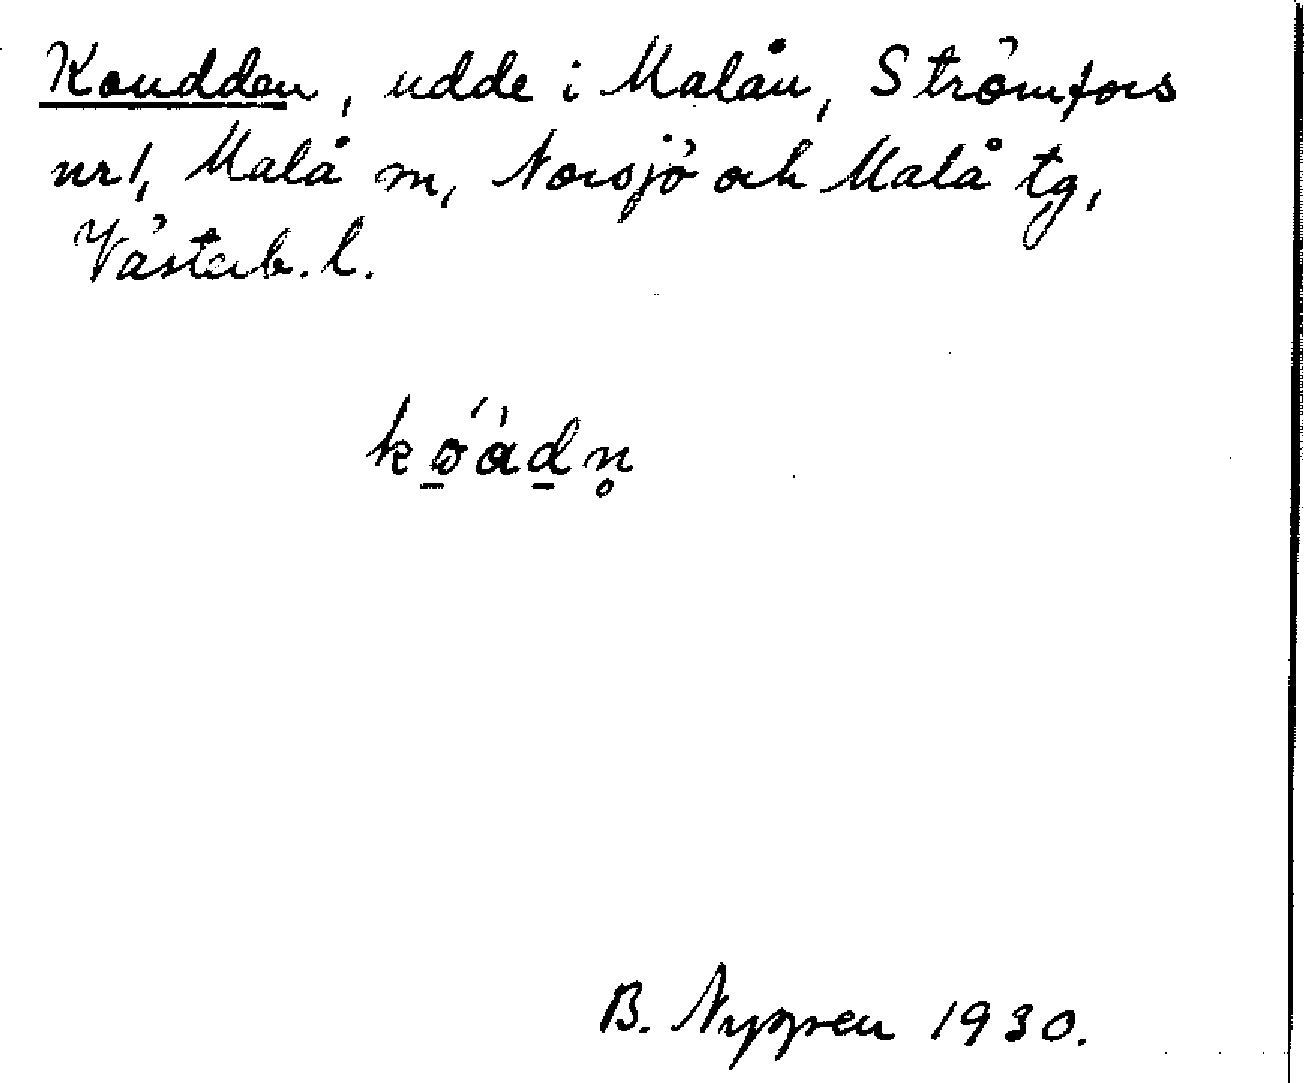 Koudden, udde i Malån, Strömfors
nr 1, Malå sn, Norsjö och Malå tg,
Västerb. l.
B. Nygren 1930.